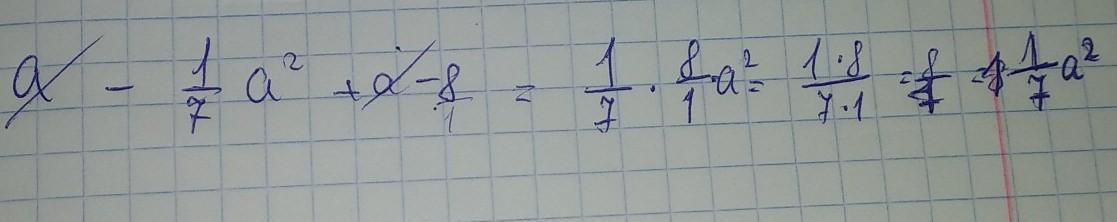 a - 1/7 a² + a - 8/1 = 1/7 · 8/1 a² = 1·8/7·1 = 8/7 = 1 1/7 a²